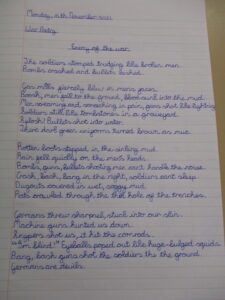 Monday, 15th November 2021
War Poetry
Enemy of the war
The soldiers stomped trudging like broken men.
Bombs crashed and bullets lashed.
Gas mills fiercely blair in mens pain,
Boosh, men fall to the ground, blood sunk into the mud.
Men screaming and screeching in pain, guns shot like lightning
Soldiers still like tombstones in a graveyard.
Splash! Bullets shot into water.
There dark green uniform turned brown as muc.
Rotten boots stepped in the sinking mud.
Rain fell quickly on the men's heads.
Bombs, guns, bullets shooting men cant handle the noise.
Crash, bosh, bang in the night, soldiers cant sleep
Dugouts covered in wet, soggy mud.
Rats crawled through the hole of the trenches.
Germans threw sharpnel, stuck into our skin.
Machine guns hunted us down.
Snipers shot us, it hit the comrods.
"Im blind!" Eyeballs poped out like huge-bulged squids.
Bang, bash guns shot the soldiers the the ground
Germans are devils.